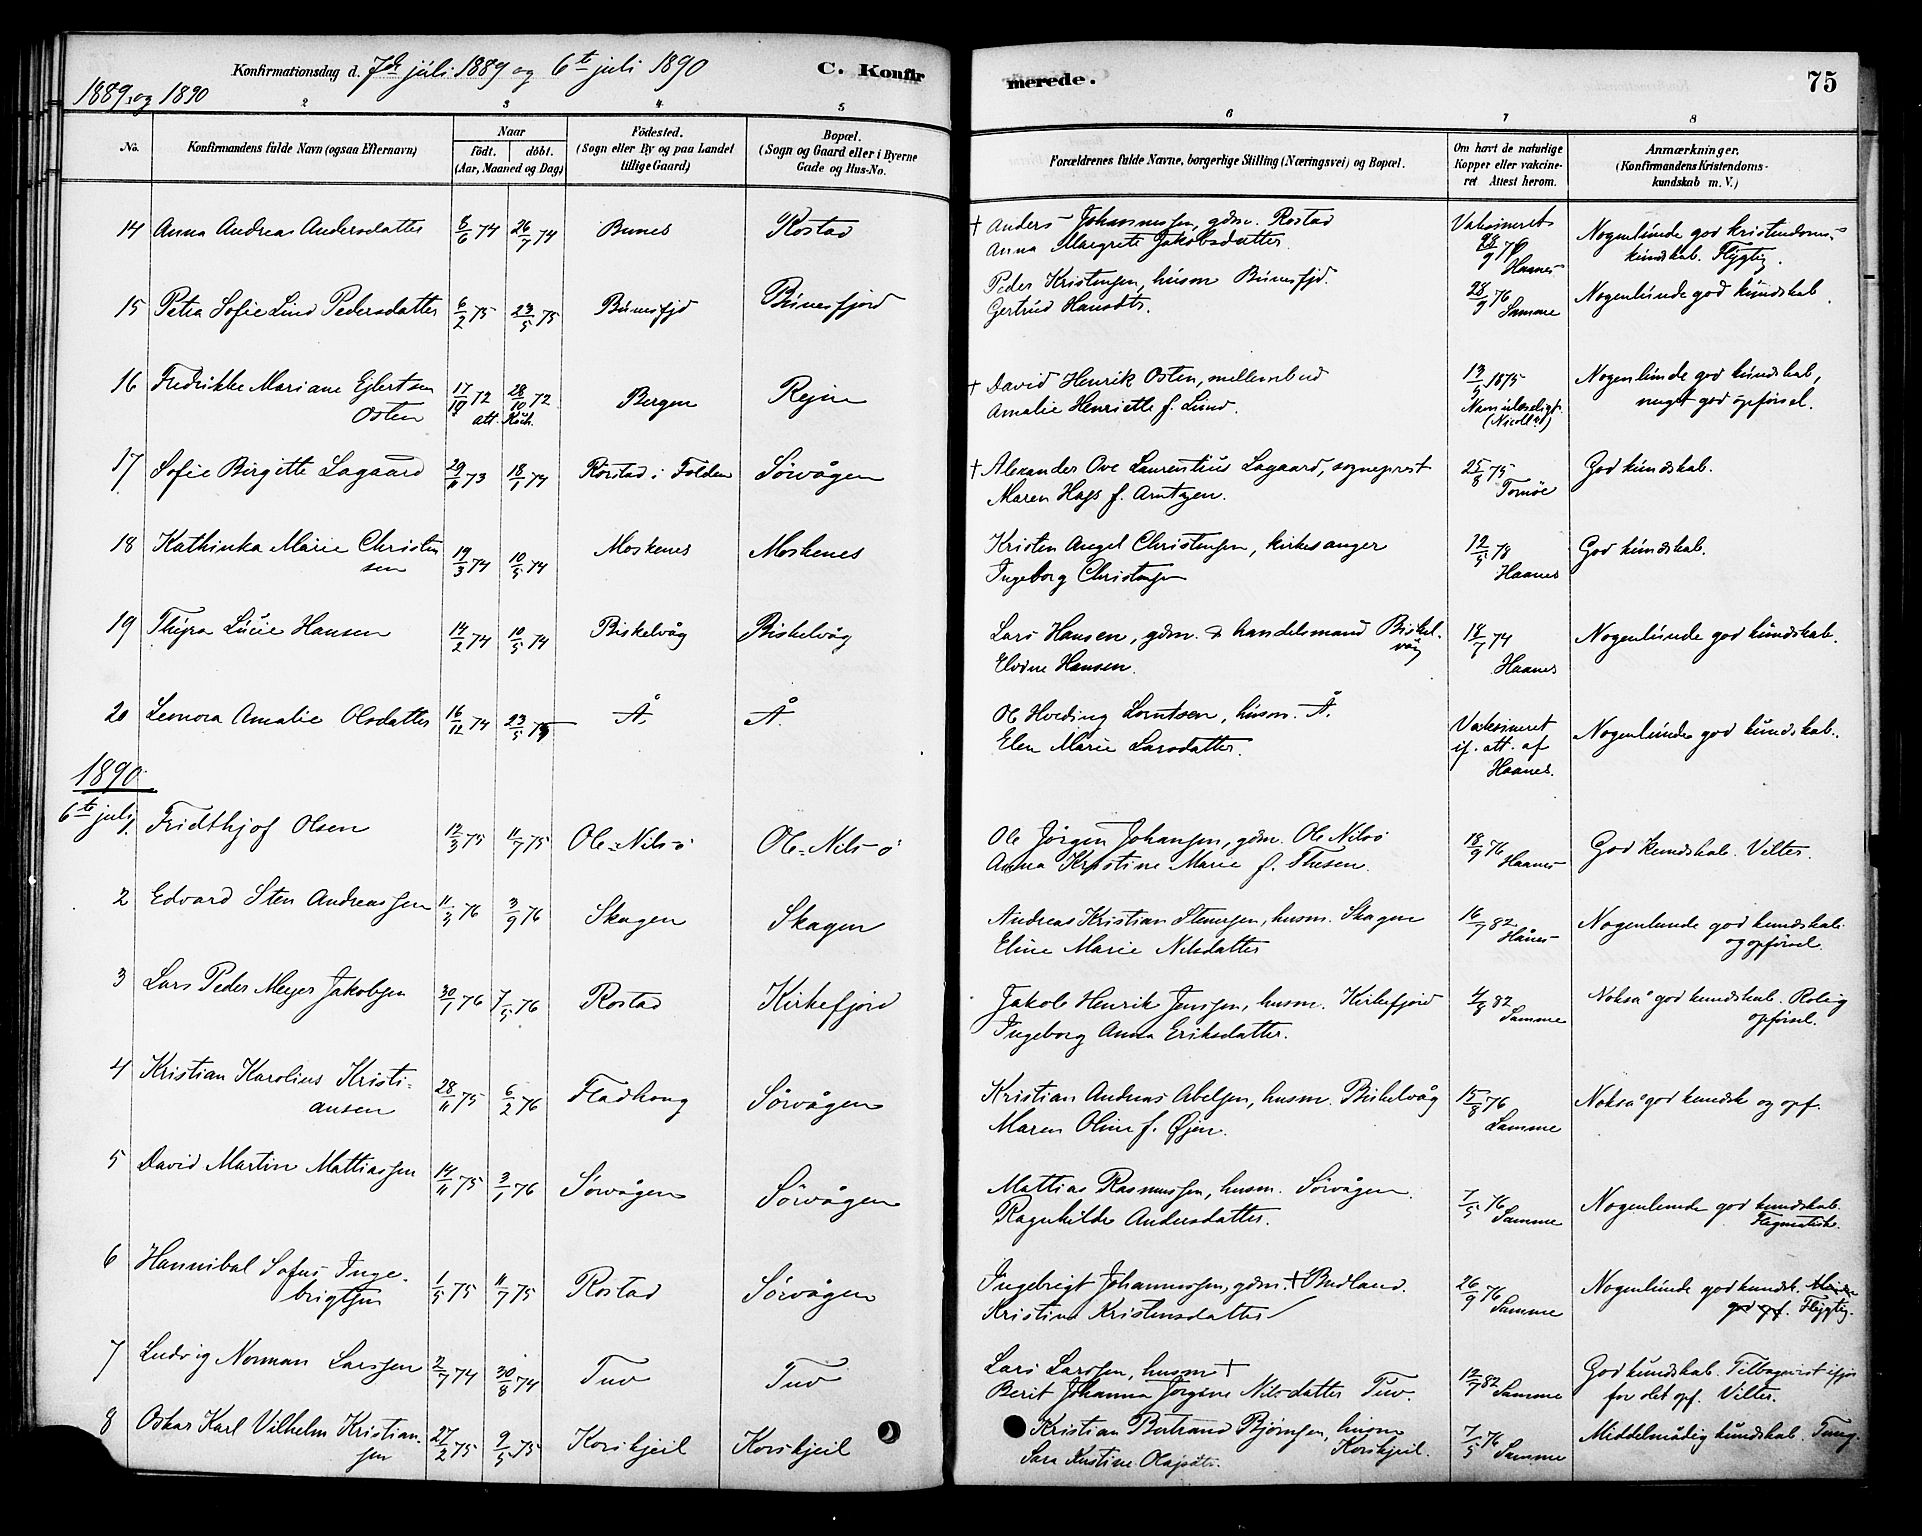 Konfirmationsdag d. 7de juli 1889 og 6te juli 1890
C. Konfirmerede.
75
1889 og 1890
2 3 4 5 6 7 8
No.
Konfirmandens fulde Navn (ogsaa Efternavn)
Naar
Födt. döbt.
(Aar, Maaned og Dag)
Födested.
(Sogn eller By og paa Landet
tillige Gaard)
Bopæl.
(Sogn og Gaard eller i Byerne
Gade og Hus-No.
Forældrenes fulde Navne, borgerlige Stilling (Næringsvei) og Bopæl.
Om havt de naturlige
Kopper eller vakcine-
ret Attest herom.
Anmærkninger.
(Konfirmandens Kristendoms-
kundskab m. V.)
14 Anna Andrea Andersdatter 8/6 74 26/7 74 Bunes Rostad † Anders Johannessen, gdm. Rostad Vaksineret Nogenlunde god kristendoms-
Anna Margrete Jakobsdatter. 28/9 76 Haanes kundskab. Flygtig.
15 Petra Sofie Lind Pedersdatter 6/2 75 23/5 75 Bunesfjd Bunesfjord Peder Kristensen, husm Bunesfjd. 28/9 76 Nogenlunde god kundskab
Gertrud Hansdtr. Samme
16 Fredrikke Mariane Ejlertsen 17/10 72 28/10 72 Bergen Rejne † David Henrik Osten, mellemsbud 13/5 1875 Nogenlunde god kundskab,
Osten att. Amalie Henriette f. Lund. Navn ulæseligt meget god opførsel.
17 Sofie Birgitte Lagaard 29/11 73 18/1 74 Rörstad i Folden Sörvågen † Alexander Ove Laurentius Lagaard, sogneprest 25/8 75 God kundskab.
Maren Hays f. Arntzen. Tomöe
18 Kathinka Marie Christen 19/3 74 10/5 74 Moskenes Moskenes Kristen Angel Christensen, kirkesanger 12/5 78 God kundskab.
sen Ingeborg Christensen Haanes
19 Thyra Lucie Hansen 14/2 74 10/5 74 Biskelvåg Biskelvåg Lars Hansen, gdm. & handelsmand Biskel. 18/7 74 Nogenlunde god kundskab.
våg
Elvine Hansen. Haanes
20 Leonora Amalie Olsdatter 16/12 74 23/5 75 Å Å. Ole Hveding Lorntsen, husm. Å. Vaksineret Nogenlunde god kundskab.
Elen Marie Larsdatter. if. att. af
Haanes.
1890.
6te juli
1 Fridthjof Olsen 12/3 75 11/7 75 Ole-Nilsö Ole-Nilsö Ole Jörgen Johansen, gdm. Ole Nilsö 18/9 76 God kundskab. Vilter.
Anna Kristine Marie f. Thesen. Haanes
2 Edvard Sten Andreassen 11/3 76 3/9 76 Skagen Skagen Andreas Kristian Stenersen, husm. Skagen 16/7 82 Nogenlunde god kundskab
Eline Marie Nilsdatter Hånes og opførsel.
3 Lars Peder Meyer Jakobsen 30/1 76 7/5 76 Rostad Kirkefjord Jakob Henrik Jenssen, husm. Kirkefjord 4/8 82 Nokså god kundskab. Rolig
Ingeborg Anna Eriksdatter. Samme opførsel.
4 Kristian Karolius Kristi- 28/11 75 6/2 76 Fladhaug Sörvågen Kristian Andreas Abelsen, husm. Biskelvåg 15/8 76 Nokså god kundsk og opf.
ansen Maren Oline f. Øjen. Samme
5 David Martin Mattiassen 14/11 75 3/1 76 Sörvågen Sörvågen Mattias Rasmussen, husm. Sörvågen. 7/5 76 Nogenlunde god kundskab.
Ragnhilde Andersdatter. Samme Flegmatisk.
6 Hannibal Sofus Inge- 1/5 75 11/7 75 Rostad Sörvågen Ingebrigt Johannessen, gdm. † Budland. 26/9 76 Nogenlunde god kundsk.
brigtsen Kristine Kristensdatter Samme god opf. Flygtig.
7 Ludvig Norman Larssen 2/7 74 30/8 74 Tuv Tuv Lars Larssen, husm † 12/7 82 God kundskab. Tilbagevist ifjor
Berit Johanna Jørgine Nilsdatter Tuv. Samme for slet opf. Vilter.
8 Oskar Karl Vilhelm Kristian- 27/2 75 9/5 75 Korshjeil Korshjeil Kristian Bertrand Bjørnsen, husm 7/5 76 Middelmådig kundskab. Tung.
sen Sara Kristine Olajsdtr. Korshjeil. Samme